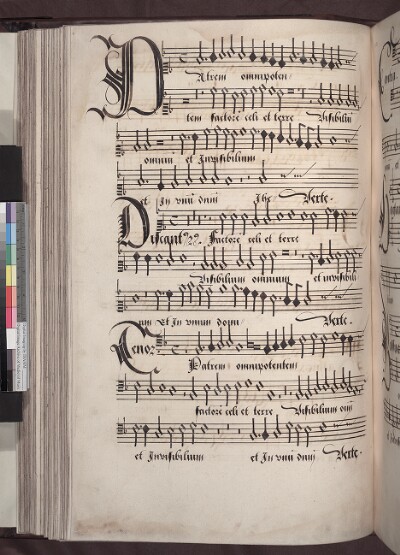 Patrem omnipoten
tem factorē celi et terre Visibiliū
omnium et Invisibilium
et In vnū dnū Ihe Verte.
Discant9 Factorē celi et terre
Visibilium omnium et invisibili
um Et In vnum dom Verte.
Tenor
Patrem omnipotentem
factorē celi et terre Visibilium om
et Invisibilium et In vnū dnū Verte.